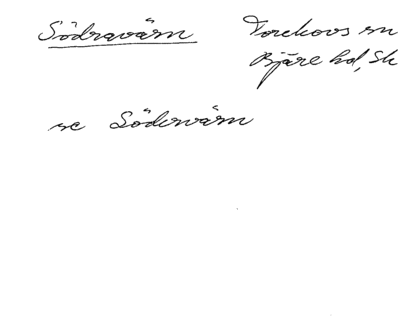 Södravärn Torekovs sn
Bjäre hd, Sk
se Södervärn